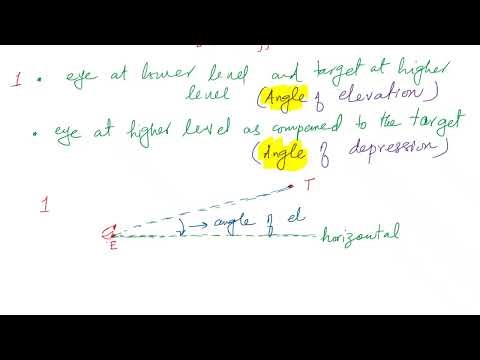 1 • eye at lower level and target at higher
level (Angle of elevation)
• eye at higher level as compared to the target
(Angle of depression)
1
T
→ angle of el
E
horizontal